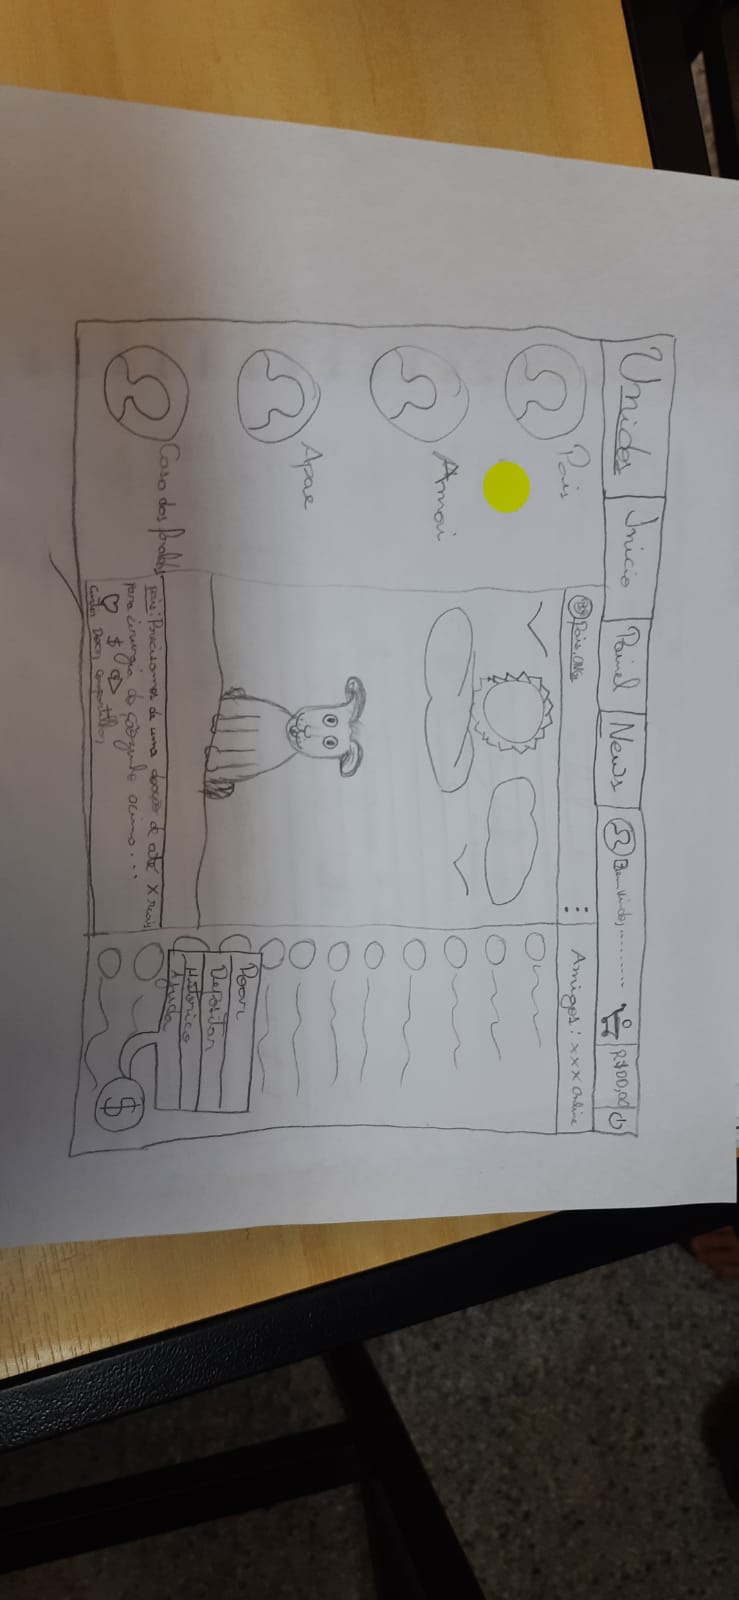 Unidos
Inicio
Painel
News
Bem vindo,..........
R$00,00
Pais
Amai
Apae
Casa dos
Pais.ONGs
pais: Precisamos de uma doação de até X reais
para cirurgia do cãozinho acima...
Curtir Doar Compartilhar
$
Amigos: xxx Online
Doar
Depositar
Historico
Ajuda
$